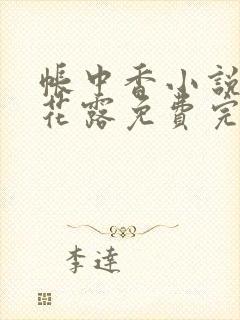 帳中香小說
花露免費完
李達